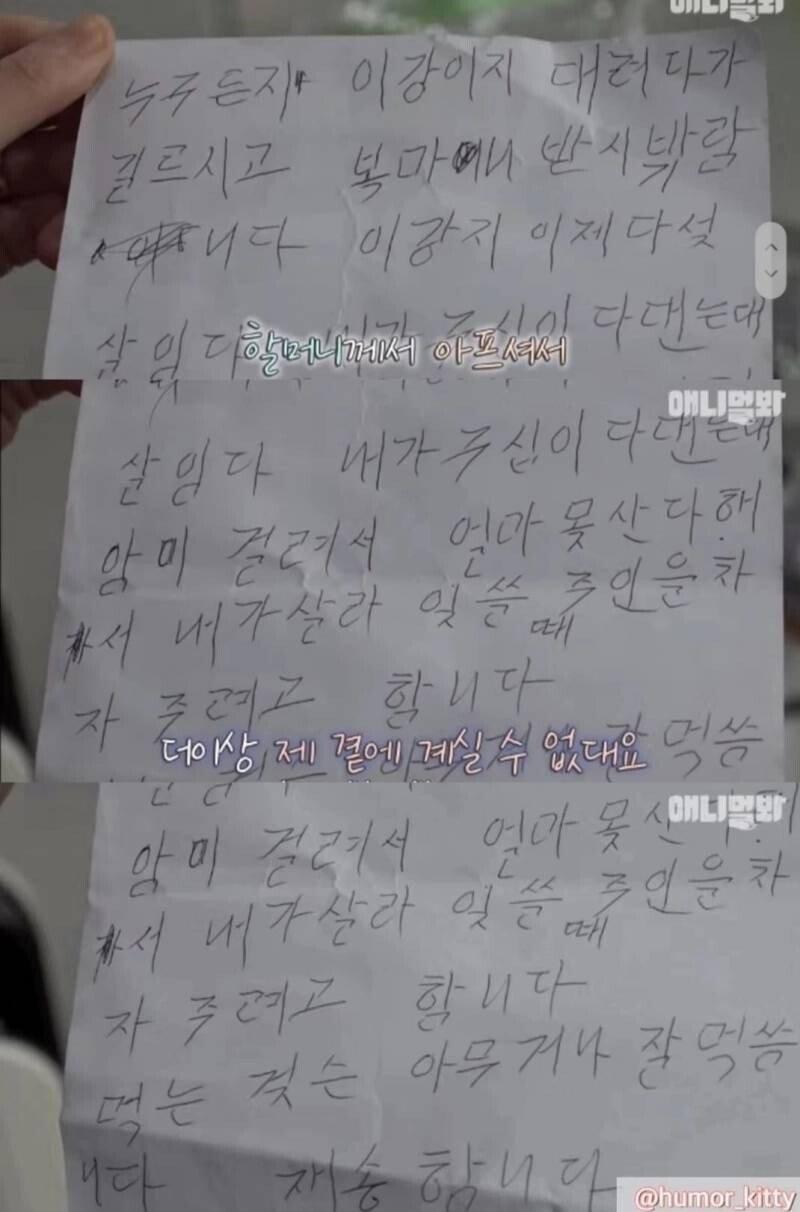 애니멀봐
누구든지 이강이지 대려다가
길르시고 복마니 반시밖람
니다 이강지 이제다섯
살임다 주십이 다댄는대
할머니께서 아프셔서
애니멀봐
살임다 내가 주십이 다댄는대
암미 걸려서 얼마 못산다해
서 내가살라 잇쓸때 주인을차
자 주려고 함니다
잘먹씀
더이상 제 곁에 계실 수 없대요
애니멀봐
암미 걸려서 얼마 못산
서 내가살라 잇쓸때 주인을차
자 주려고 함니다
먹는 것슨 아무거나 잘먹씀
니다 재송함니다
@humor_kitty